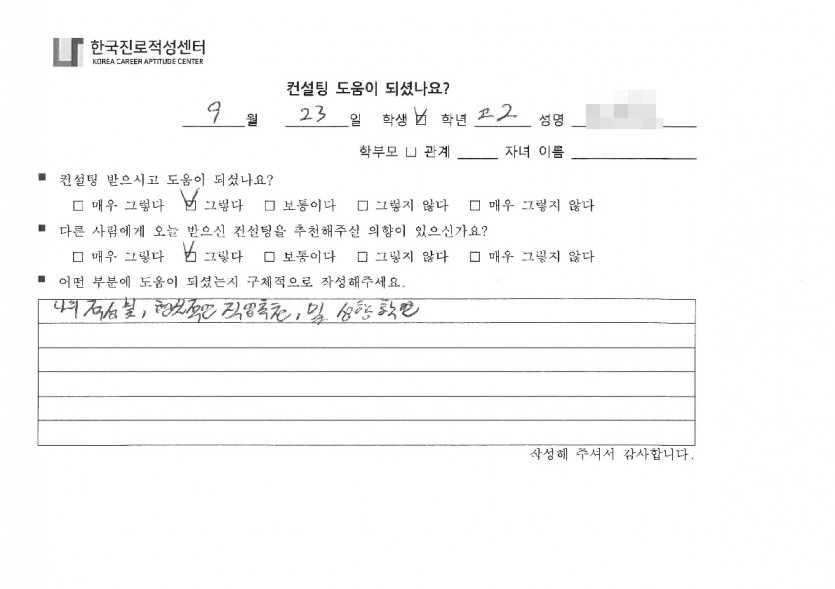 한국진로적성센터
KOREA CAREER APTITUDE CENTER
컨설팅 도움이 되셨나요?
9 월 23 일 학생 ☑ 학년 고2 성명
학부모 □ 관계 자녀 이름
■ 컨설팅 받으시고 도움이 되셨나요?
□ 매우 그렇다 ☑ 그렇다 □ 보통이다 □ 그렇지 않다 □ 매우 그렇지 않다
■ 다른 사람에게 오늘 받으신 컨설팅을 추천해주실 의향이 있으신가요?
□ 매우 그렇다 ☑ 그렇다 □ 보통이다 □ 그렇지 않다 □ 매우 그렇지 않다
■ 어떤 부분에 도움이 되셨는지 구체적으로 작성해주세요.
나의 적성 및, 현실적인 직업추천, 및 성향확인
작성해 주셔서 감사합니다.